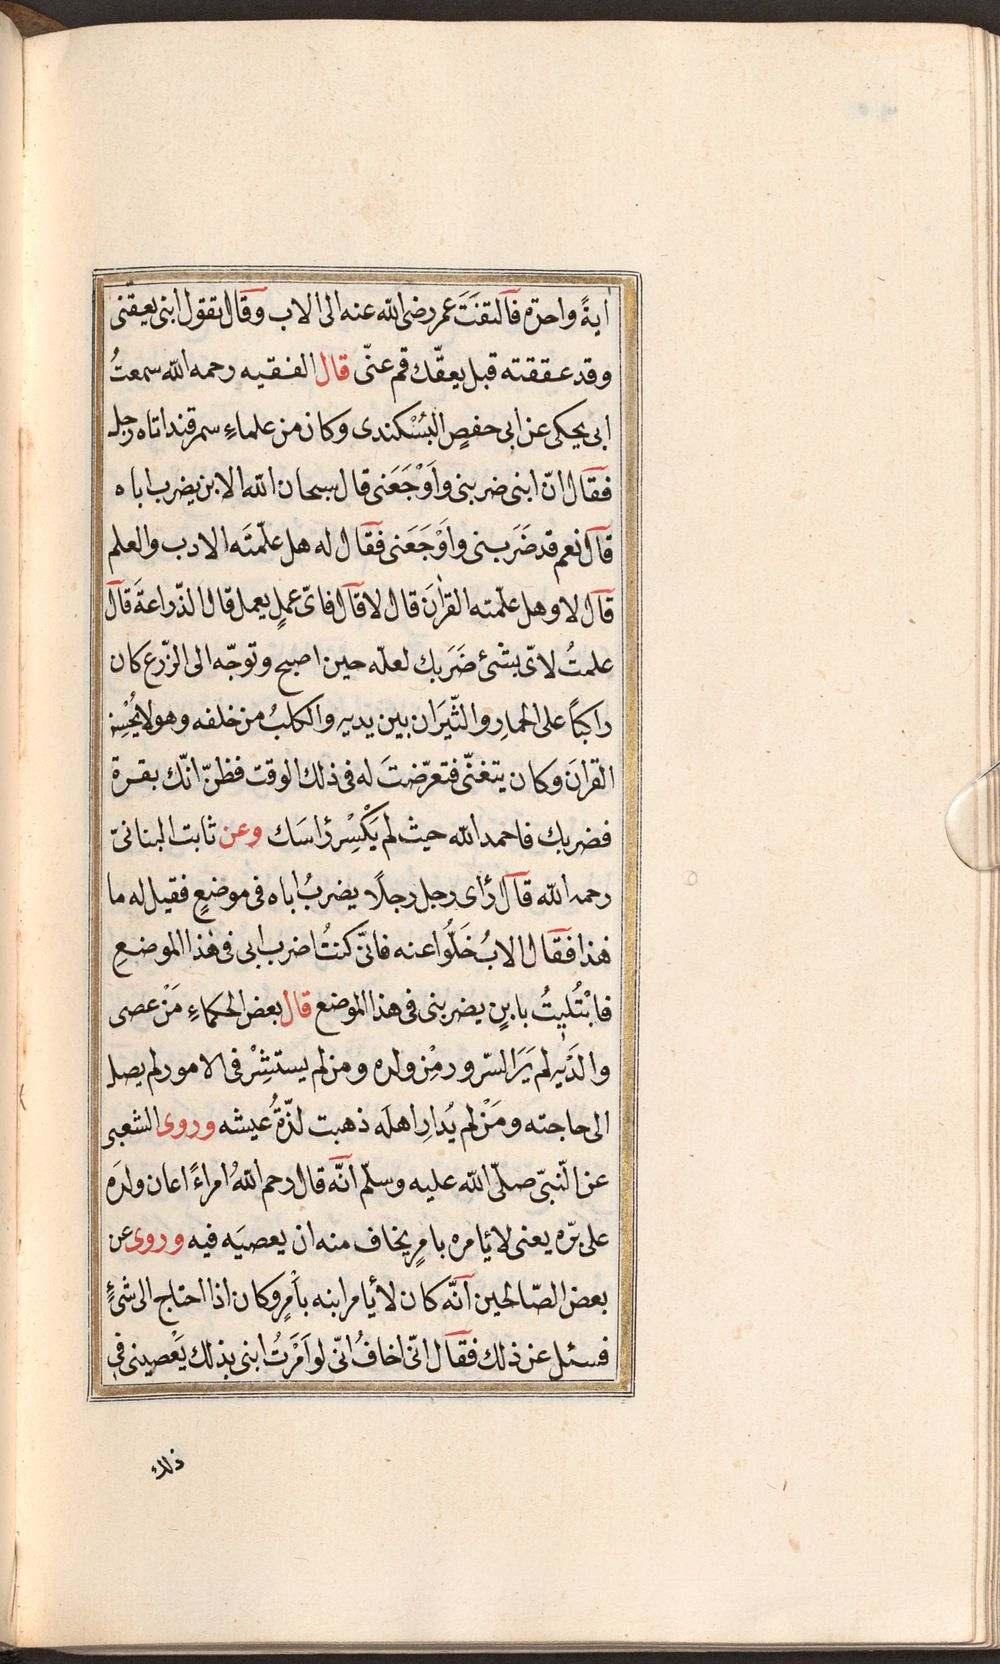 اٰيةً واحدة فالتفَتَ عمر رضى الله عنه الى الاب وقال تقول ابنى يعقّنى
وقد عققته قبل يعقّك قم عنّى قال الفقيه رحمه الله سمعتُ
ابى يحكى عن ابى حفصٍ البُسْكندى وكان من علماءِ سمرقند اتاه رجل
فقال انّ ابنى ضربنى وَاَوْجَعَنى قال سبحان الله الابن يضرب اباه
قال نعم قد ضَرَبنى واَوْجَعَنى فقال له هل علّمتَه الادب والعلم
قال لا وهل علّمته القراٰنَ قال لا قال فاىّ عملٍ يعمل قال الذّراعةَ قال
علمتُ لاىّ بشئ ضَرَبك لعلّه حين اصبح وتوجّه الى الزّرع كان
راكبًا على الحمارِ والثّيَران بين يديه والكلبُ من خلفه وهو لا يُحْسِن
القراٰنَ وكان يتغنّى فتعرّضتَ له فى ذلك الوقت فظنّ انّك بقرة
فضربك فاحمد الله حيث لم يَكْسِرْ رْاسَك وعن ثابت البنانىّ
رحمه الله قال رْاى رجل رجلًا يضربُ اباه فى موضعٍ فقيل له ما
هٰذا فقال الابُ خَلُّوا عنه فانّى كنتُ اضرب ابى فى هٰذا الموضعِ
فابْتُليتُ بابنٍ يضربنى فى هذا الموضع قال بعض الحكماءِ مَنْ عصى
والدَيْهِ لم يَرَ السّرور مِنْ ولده ومن لم يستشِرْ فى الامور لم يصل
الى حاجته ومَنْ لم يُدارِ اهلَه ذهبت لذّةُ عيشه وروى الشعبى
عن النّبىّ صلّى الله عليه وسلّم انّه قال رحم اللهُ امراءً اعان ولدَه
على برّه يعنى لا ئامره بامرٍ يخاف منه ان يعصيَه فيه وروى عن
بعض الصّالحين انّه كان لا ئامر ابنه بأمْرٍ وكان اذا احتاج الى شئٍ
فسئل عن ذلك فقال انّى اخافُ انّى لو اَمَرْتُ ابنى بذلك يَعْصينى فى
ذلك